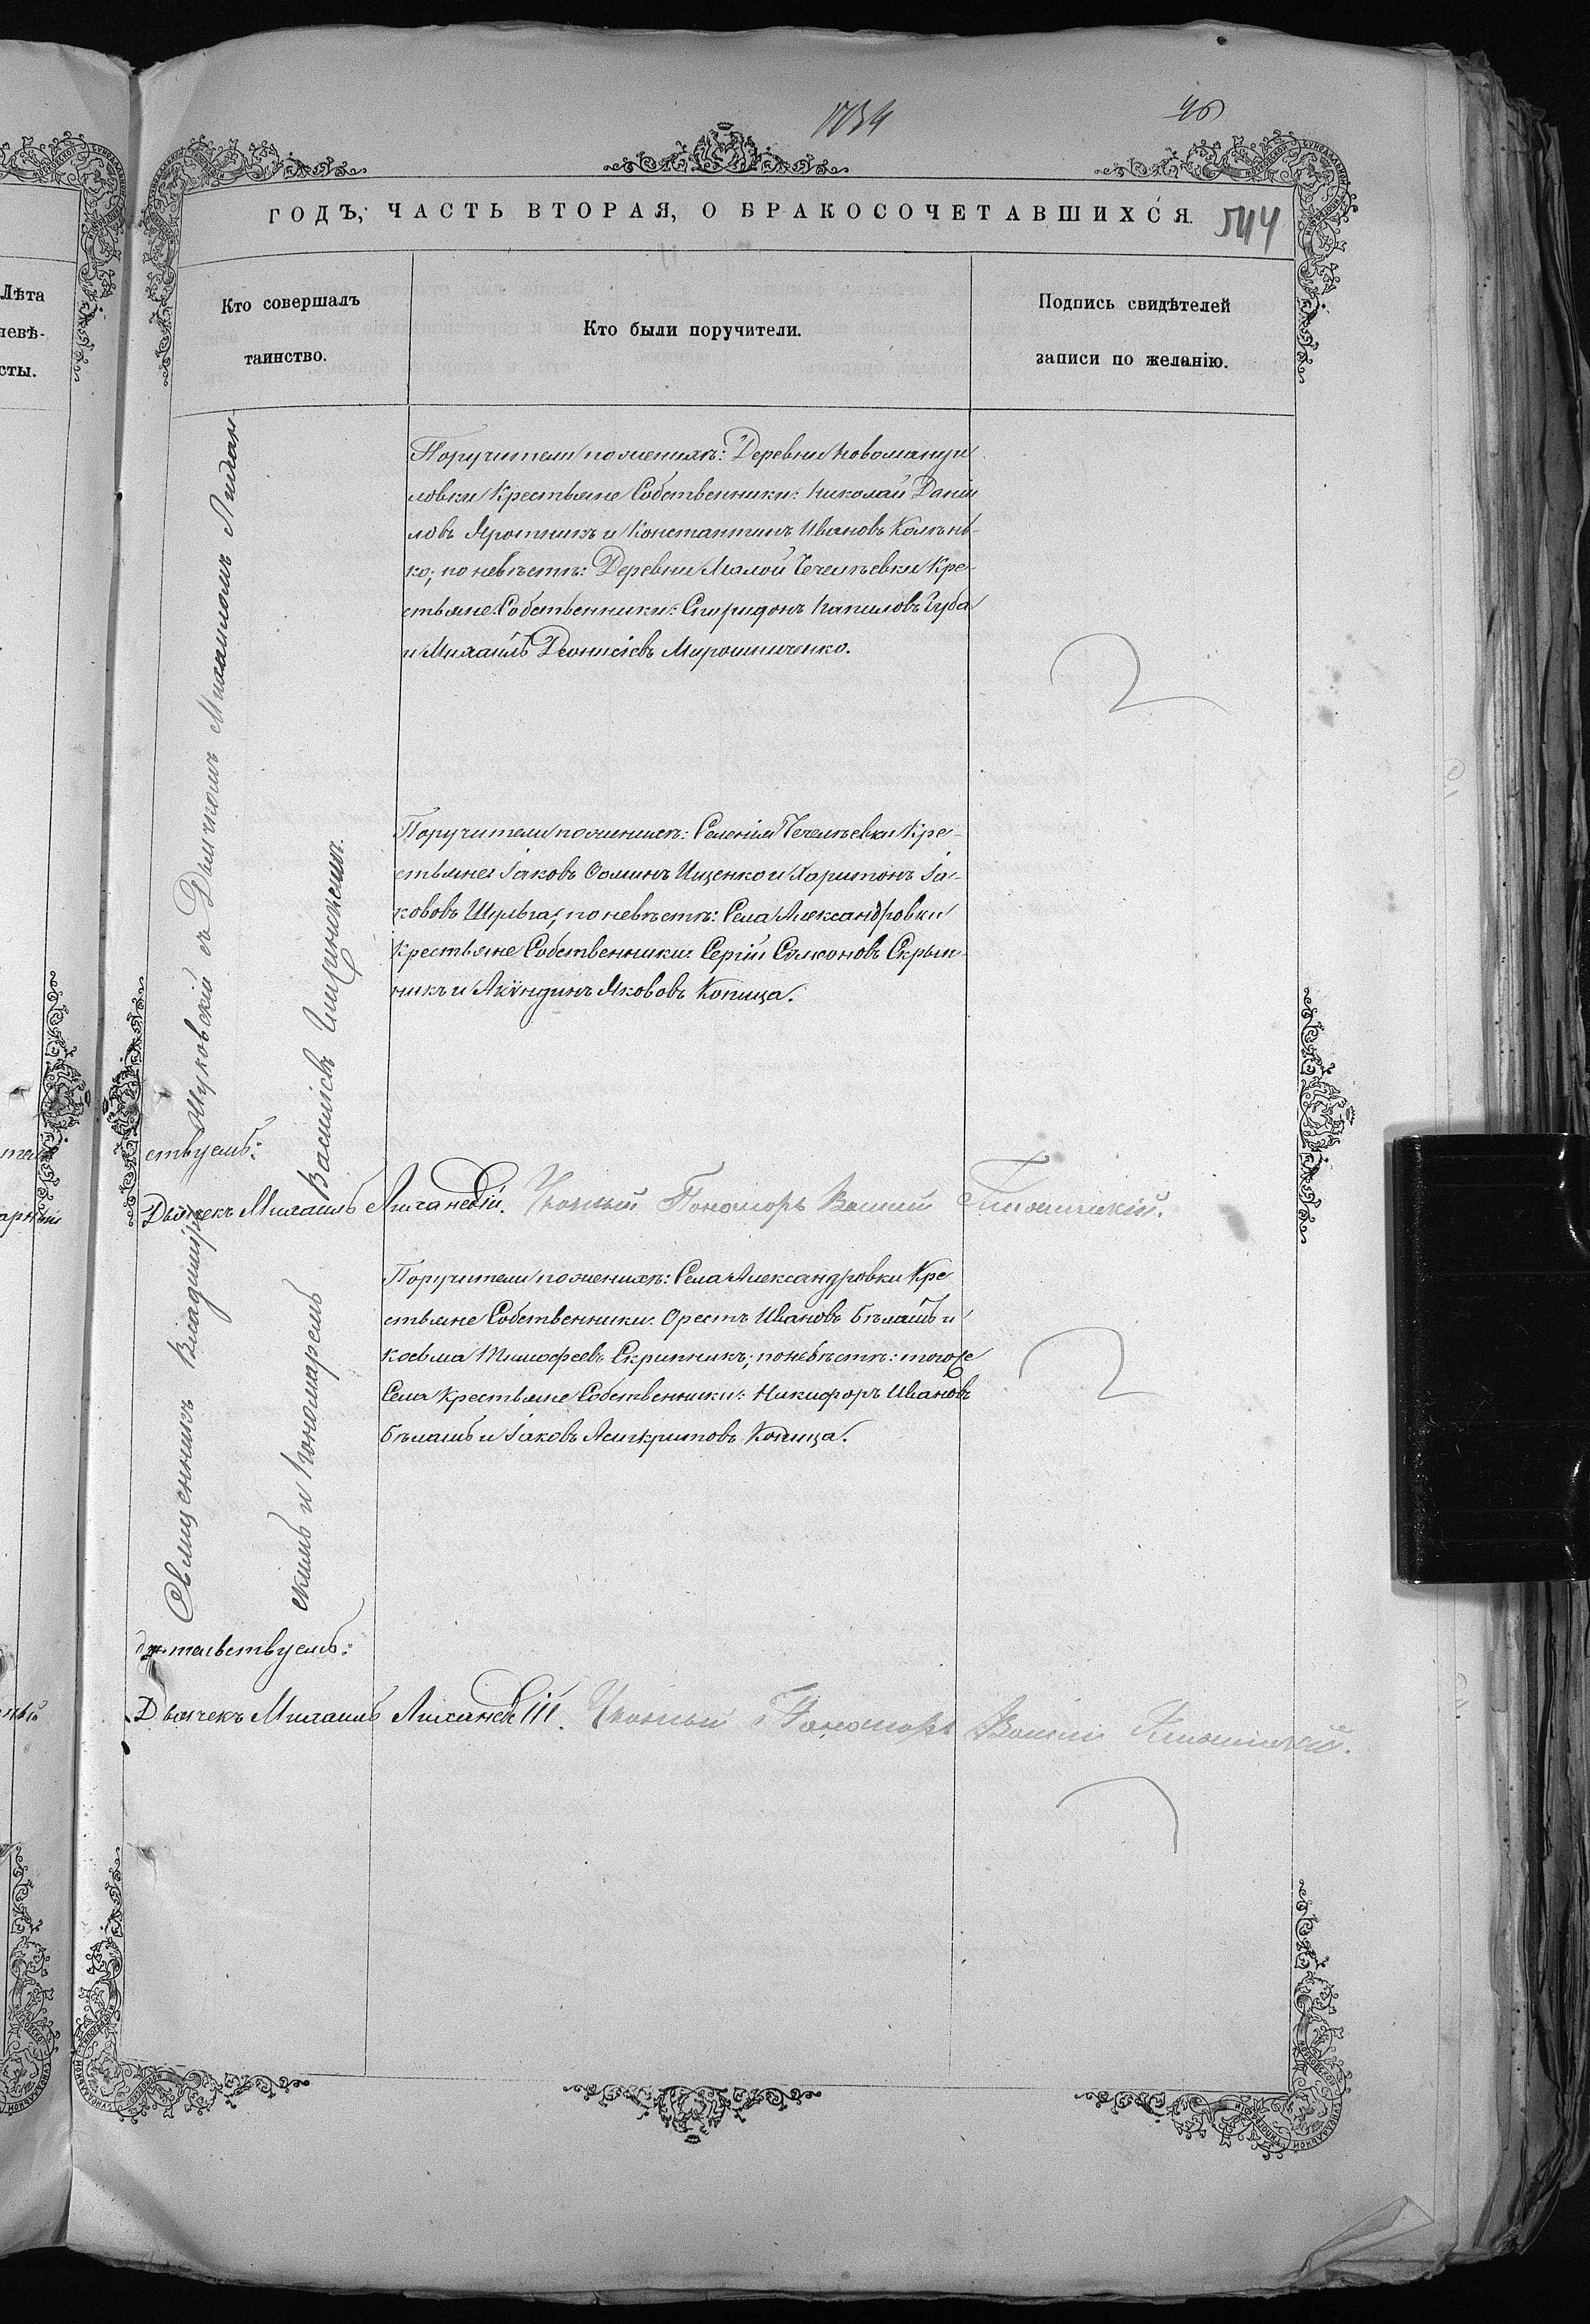 46
ГОДЪ, ЧАСТЬ ВТОРАЯ, О БРАКОСОЧЕТАВШИХСЯ.
544
Лѣта
невѣ-
сты.
Кто совершалъ
таинство.
Кто были поручители.
Подпись свидѣтелей
записи по желанію.
Священникъ Владиміръ Жуковскій съ Дьячкомъ Михаиломъ Лихан
скимъ и Пономаремъ Василіемъ
Поручители по женихѣ: Деревни Новомануи
ловки Крестьяне Собственники: Николай Даніи
ловъ Яротникъ и Константинъ Ивановъ Колѣнь-
ко; по невѣстѣ: Деревни Малой Чечелѣевки Кре-
стьяне Собственники: Спиридонъ Даниловъ Губа
и Михаилъ Діонисіевъ Мирошниченко.
Поручители по женихѣ: Селенія Чечелѣевки Кре-
стьяне Іаковъ Ѳоминъ Ищенко и Харитонъ Іа-
кововъ Шульга; по невѣстѣ: Села Александровки
Крестьяне Собственники: Сергій Симоновъ Скрып-
никъ и Акиндинъ Яковъ Копица.
ствуемъ:
Дьячекъ Михаилъ Лиханскій. Пономарь Василій
Поручители по женихѣ: Села Александровки Кре
стьяне Собственники: Орестъ Ивановъ Бѣлашъ и
Косьма Тимофеевъ Скрипникъ; по невѣстѣ: того же
Села Крестьяне Собственники: Никифоръ Ивановъ
Бѣлашъ и Іаковъ Асигкритовъ Копица.
дѣтельствуемъ:
Дьячекъ Михаилъ Лиханскій. Пономарь Василій